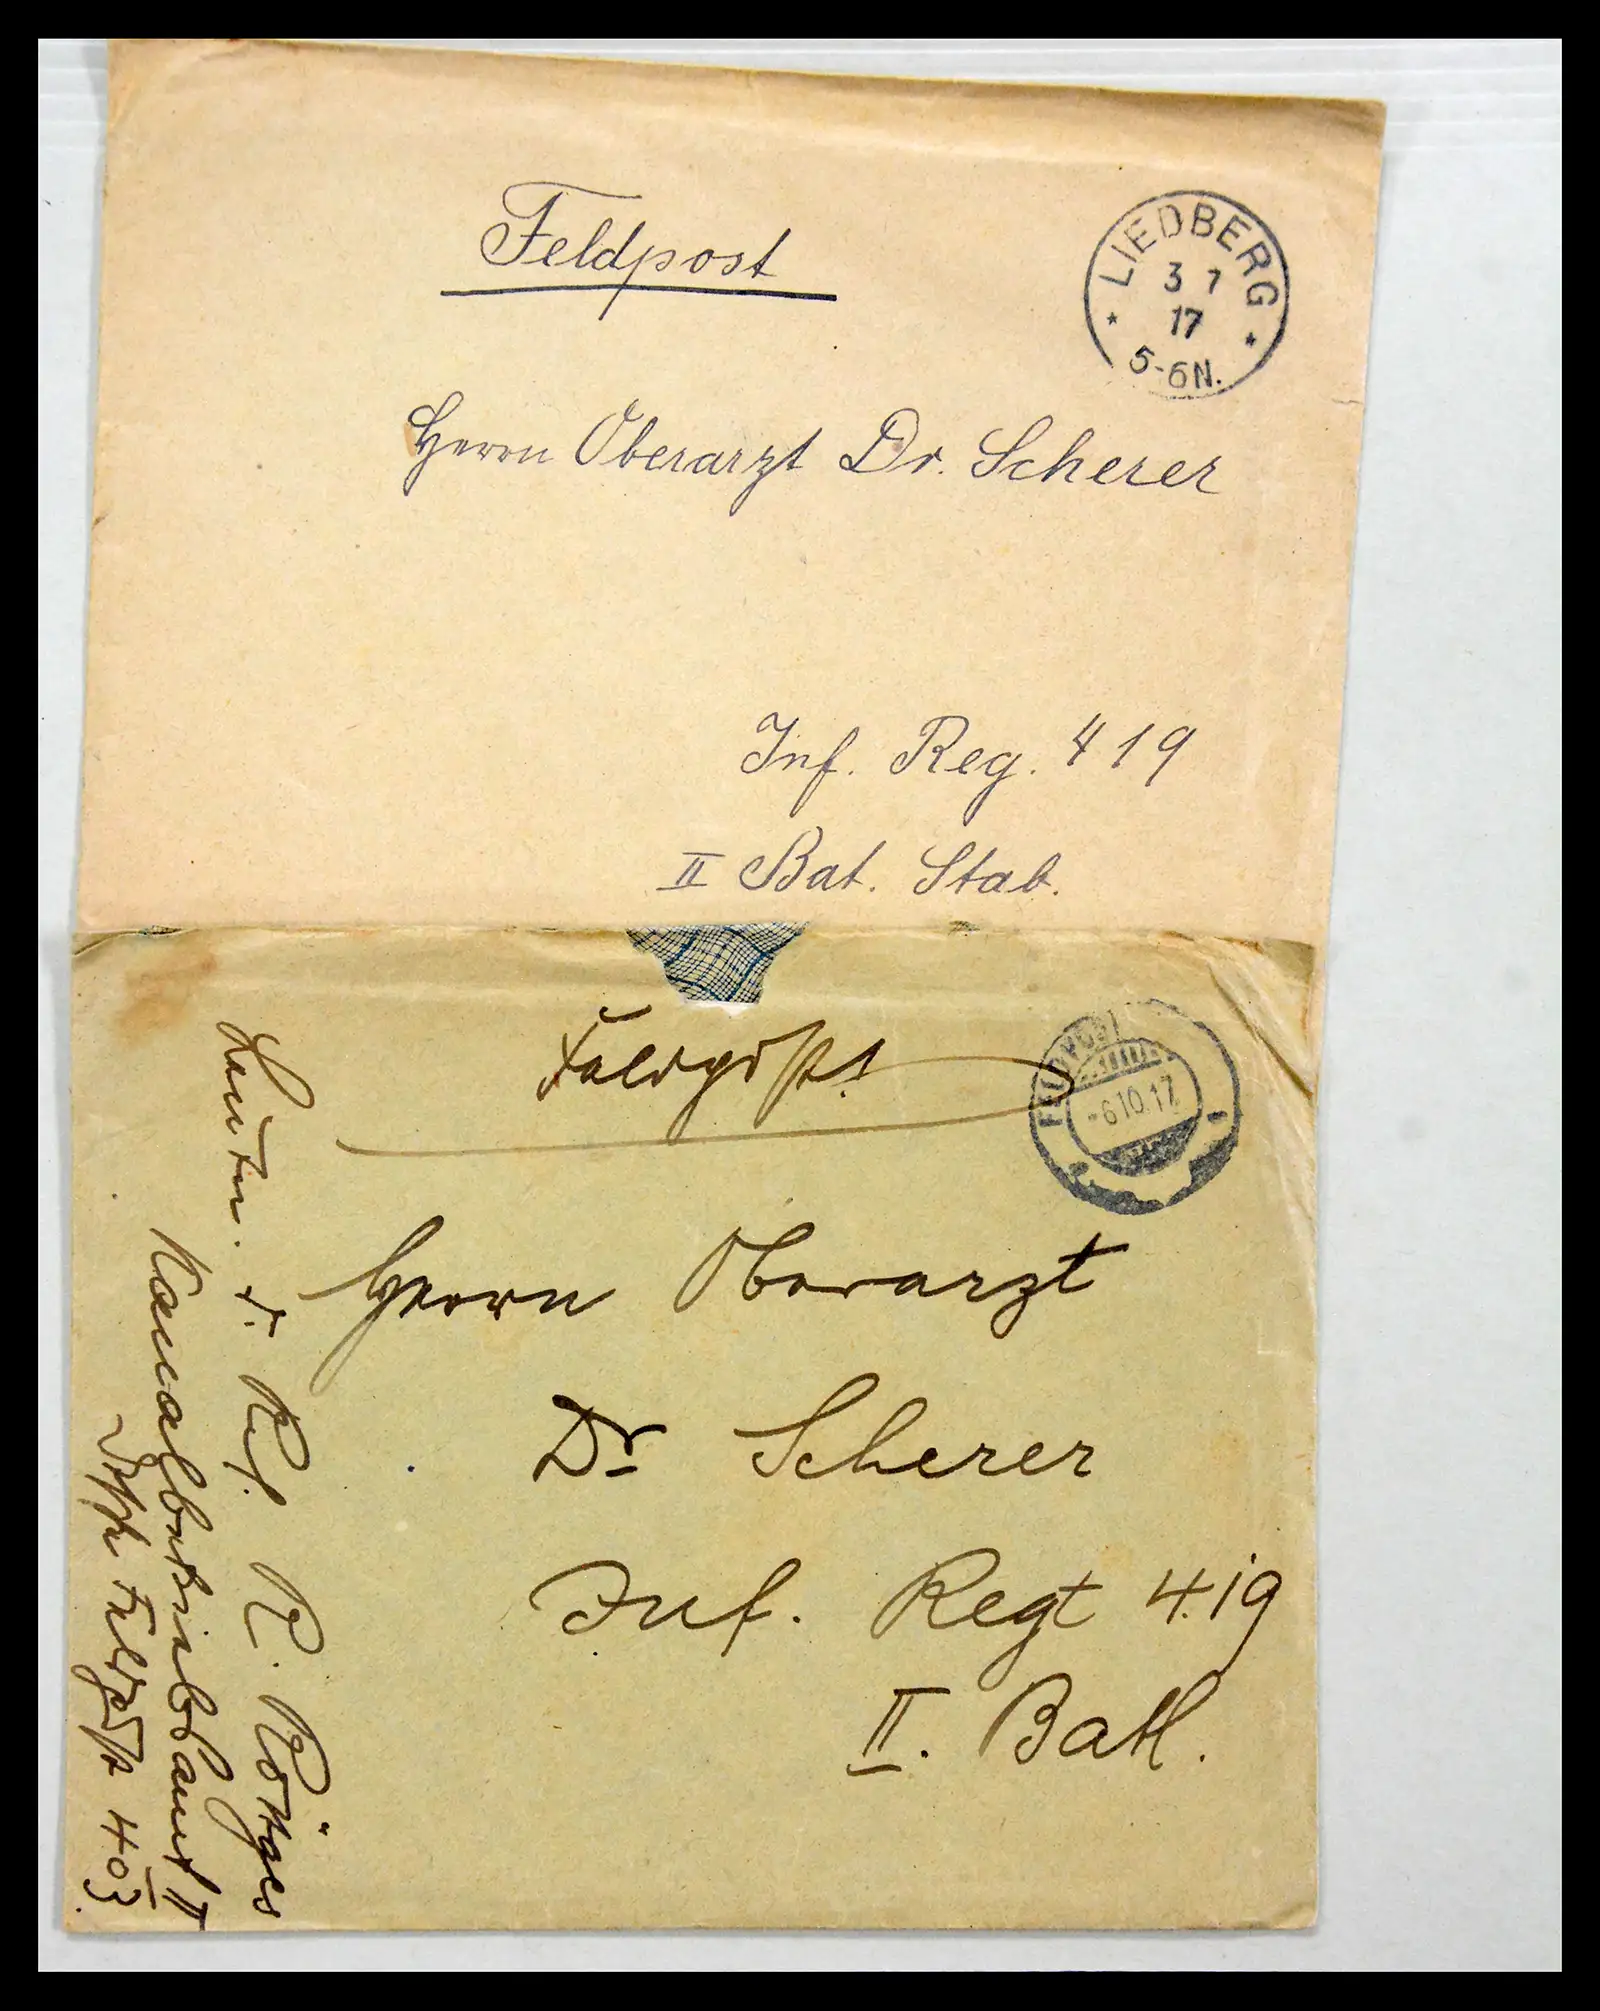 Feldpost
LIEDBERG
3 7
17
5-6N.
Herrn Oberarzt Dr. Scherer
Inf. Reg. 419
II Bat. Stab.
Feldpost
FELDPOST
-6.10.17.
Herrn Oberarzt
Dr Scherer
Inf. Regt 419
II. Batl.
Leutn. d. Res. R. Röttges
Kanalbetriebsamt II
Dtsche Feldpost 403